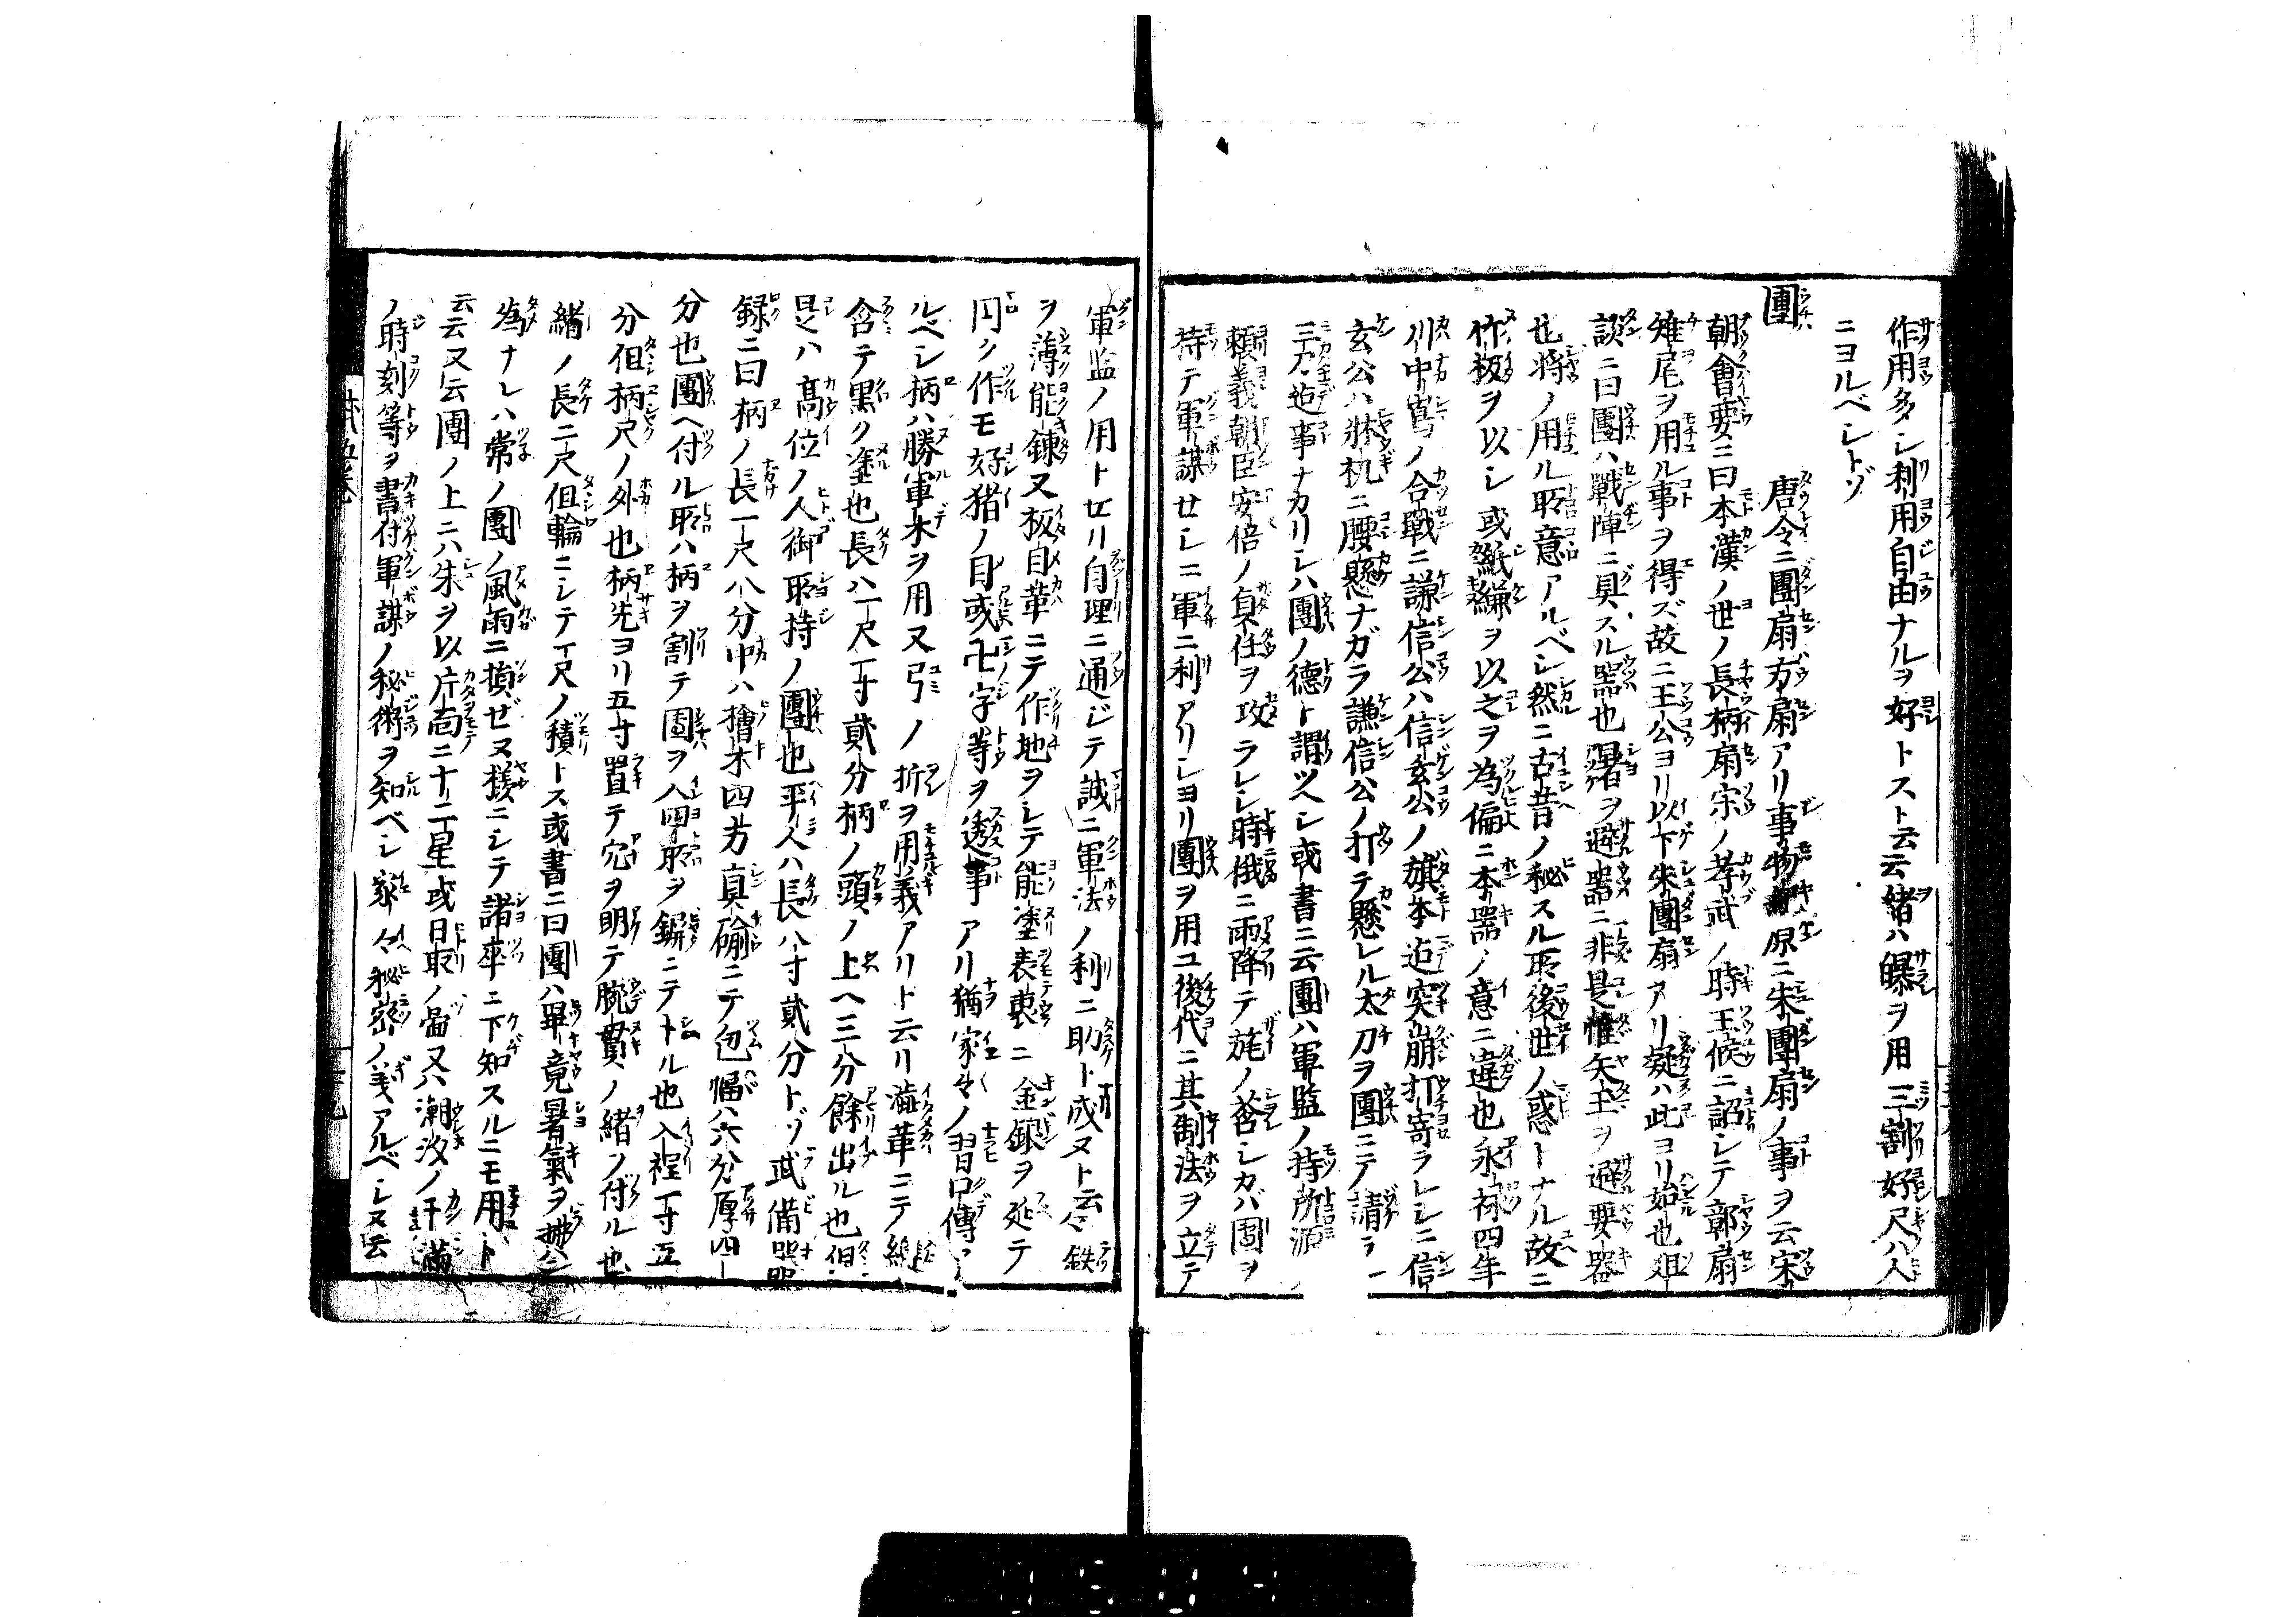 作用多シ利用自由ナルヲ好トスト云云緒ハ曝ヲ用三割好尺ハ入
ニヨルベシトゾ
團 唐令ニ團扇方扇アリ事物原ニ朱團扇ノ事ヲ云宋
朝會要ニ曰本漢ノ世ノ長柄扇宋ノ孝武ノ時王侯ニ詔シテ鄣扇
雉尾ヲ用ル事ヲ得ズ故ニ王公ヨリ以下朱團扇アリ疑ハ此ヨリ始也俎
談ニ曰團ハ戰陣ニ具スル器也暑ヲ避器ニ非是惟矢玉ヲ避要器
也将ノ用ル所意アルベシ然ニ古昔ノ秘スル所後世ノ惑トナル故ニ
竹板ヲ以シ或紙縑ヲ以之ヲ為偏ニ本器ノ意ニ違也永禄四年
川中嶌ノ合戰ニ謙信公ハ信玄公ノ旗本迠突崩打寄ラレシニ信
玄公ハ牀机ニ腰懸ナガラ謙信公ノ打テ懸レル太刀ヲ團ニテ請ラ
三刀迠事ナカリシハ團ノ德ト謂ツベシ或書ニ云團ハ軍監ノ持所源
賴義朝臣安倍ノ貞任ヲ攻ラレシ時俄ニ雨降テ旄ノ萎シカバ團ヲ
持テ軍謀セシニ軍ニ利アリシヨリ團ヲ用ユ後代ニ其制法ヲ立テ
軍監ノ用トセリ自理ニ通ジテ誠ニ軍法ノ利ニ助ト成ヌト云々鉄
ヲ薄能錬又板目革ニテ作地ヲシテ能塗表裏ニ金銀ヲ延テ
円ク作モ好猪ノ目或卍字等ヲ透事アリ猶家々ノ習口傳ア
ルベシ柄ハ勝軍木ヲ用又弓ノ折ヲ用義アリト云リ滋革ニテ
含テ黒ク塗也長ハ一尺丁寸貳分柄ノ頭ノ上ヘ三分餘出ル也但
是ハ高位ノ人御所持ノ團也平人ハ長八寸貳分トゾ武備器
録ニ曰柄ノ長一尺八分中ハ檜木四方真鍮ニテ包幅八六分厚四
分也團ヘ付ル所ハ柄ヲ割テ團ヲ入四所ヲ鋲ニテトル也入程丁寸五
分但柄尺ノ外也柄先ヨリ五寸置テ穴ヲ明テ腕貫ノ緒ノ付ル也
緒ノ長二尺但輪ニシテ丁尺ノ積トス或書ニ曰團ハ畢竟暑氣ヲ拂ハン
為ナレハ常ノ團ノ風雨ニ損ゼヌ様ニシテ諸卒ニ下知スルニモ用ト
云云又云團ノ上ニハ朱ヲ以片面ニ十二星或日取ノ啚又ハ潮汐ノ干満
ノ時刻等ヲ書付軍謀ノ秘術ヲ知ベシ家々秘密ノ義アルベシ又云